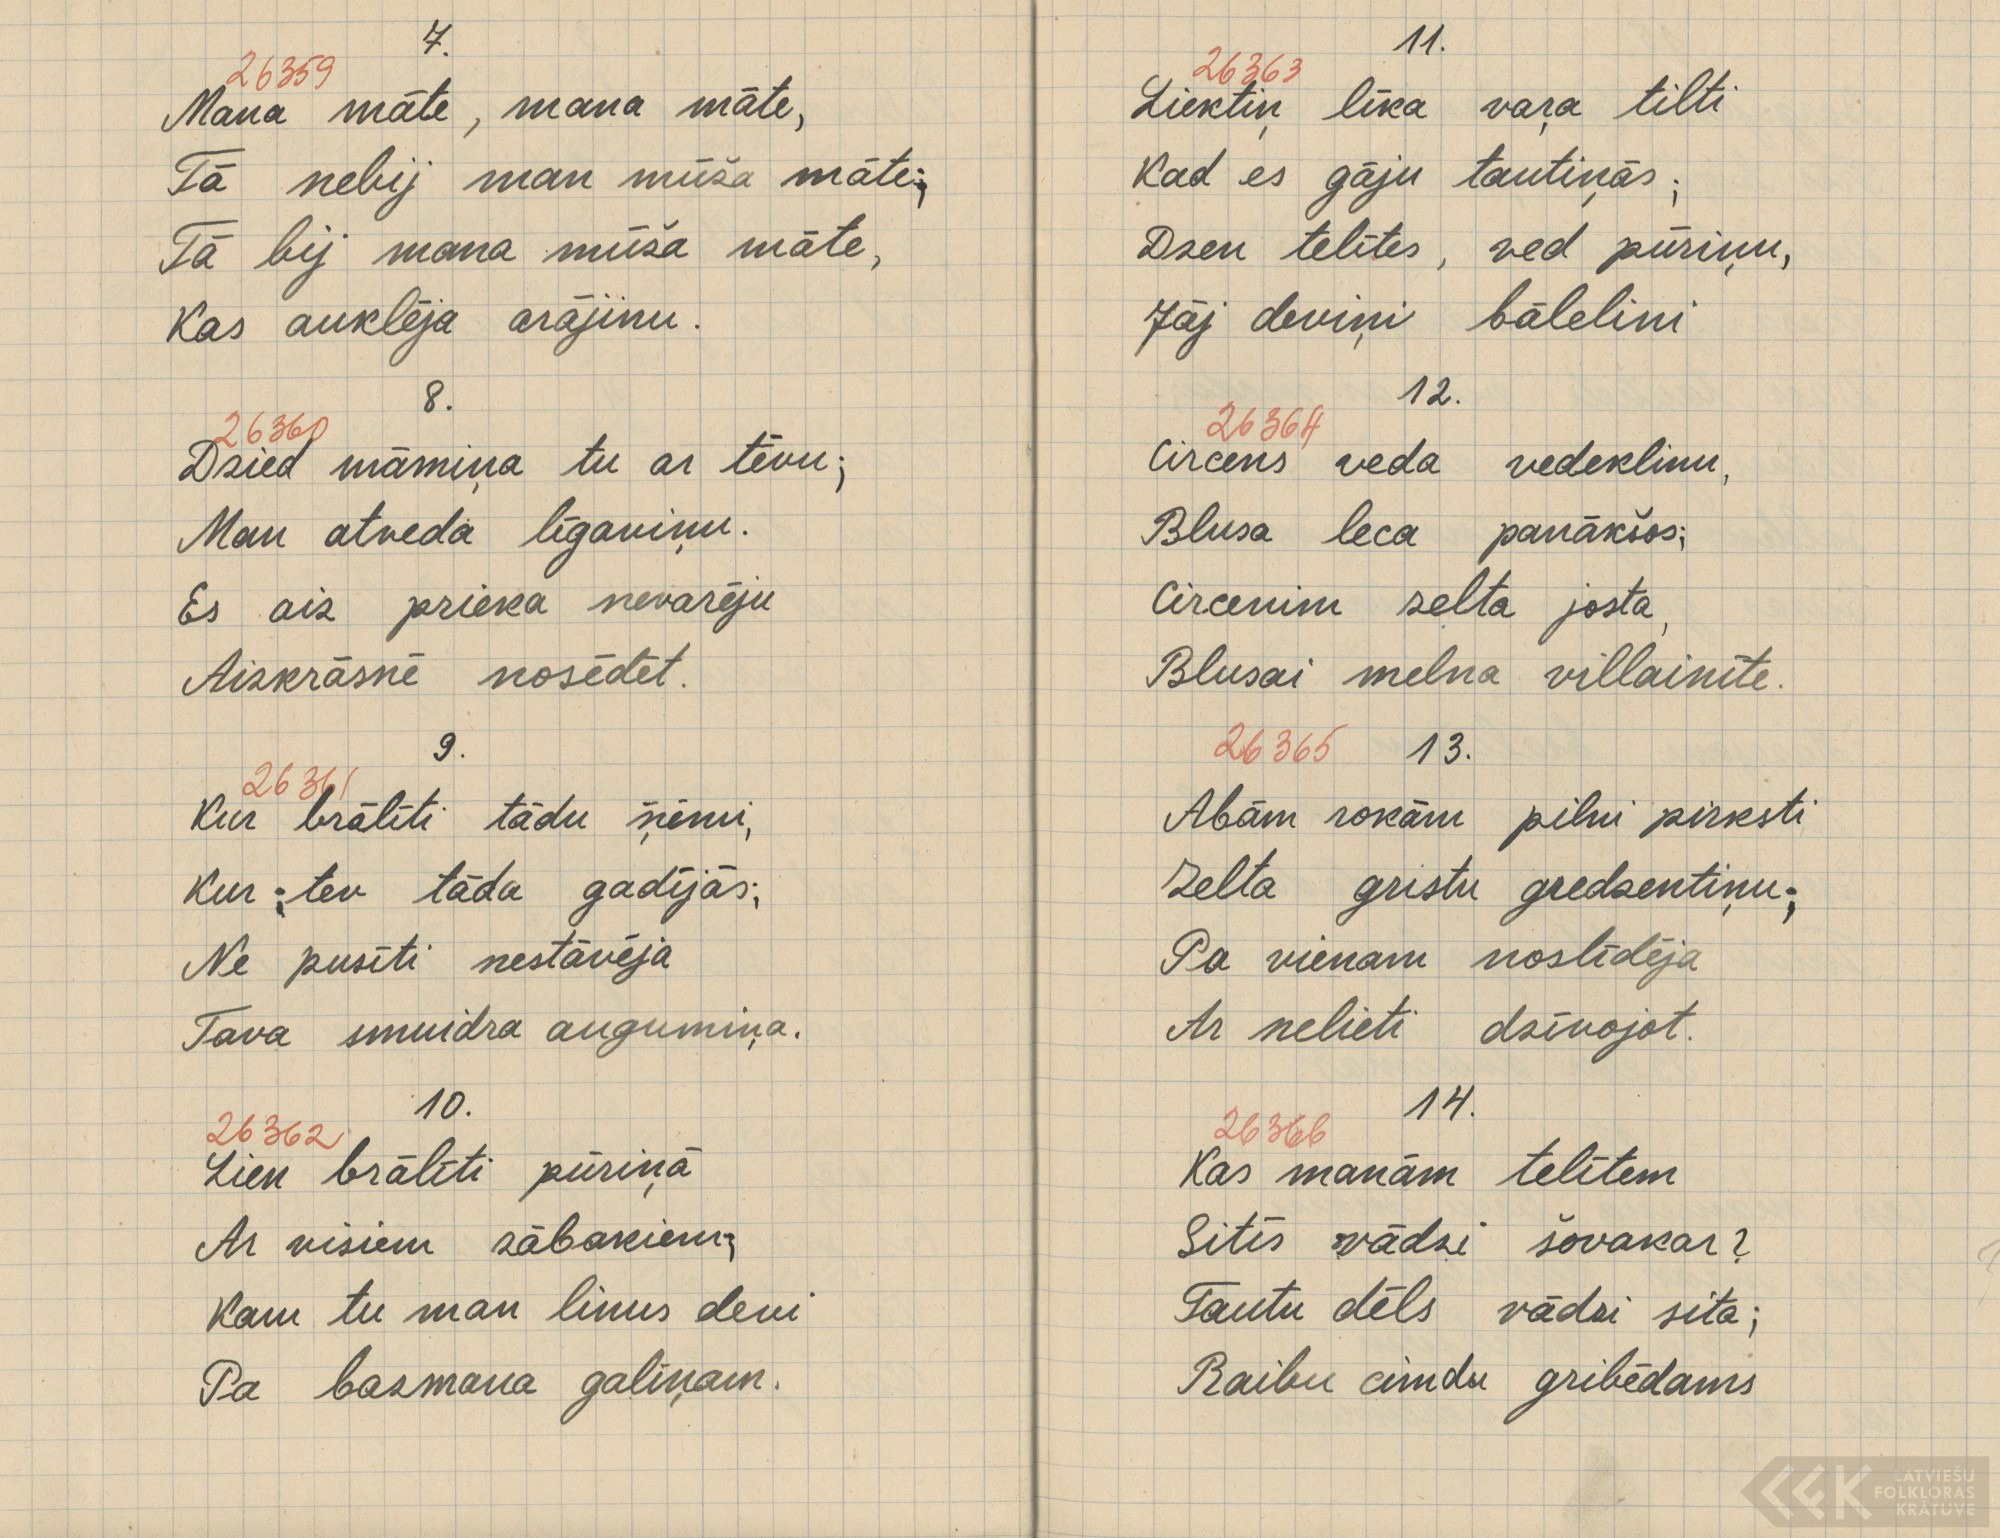 7.
26359
Mana māte, mana māte,
Tā nebij man mūža māte;
Tā bij mana mūža māte,
Kas auklēja arājinu.
8.
26360
Dzied māmiņa tu ar tēvu;
Man atveda līgaviņu.
Es aiz prieka nevarēju
Aizkrāsnē nosēdēt.
9.
26361
Kur brālīti tādu ņēmi,
Kur tev tāda gadījās;
Ne pusīti nestāvēja
Tava smuidra augumiņa.
10.
26362
Lien brālīti pūriņā
Ar visiem zābakiem;
Kam tu man linus devi
Pa bazmana galiņam.
11.
26363
Liektiņ līka vaŗa tilti
Kad es gāju tautiņās;
Dzen telītes, ved pūriņu,
Jāj deviņi bālelini
12.
26364
Circens veda vedeklinu,
Blusa leca panākšos;
Circenim zelta josta,
Blusai melna villainīte.
26365 13.
Abām rokām pilni pirksti
Zelta gristu gredzentiņu;
Pa vienam noslīdēja
Ar nelieti dzīvojot.
14.
26366
Kas manām telītem
Sitīs vādzi šovakar?
Tautu dēls vādzi sita;
Raibu cimdu gribēdams
LATVIEŠU
FOLKLORAS
KRĀTUVE